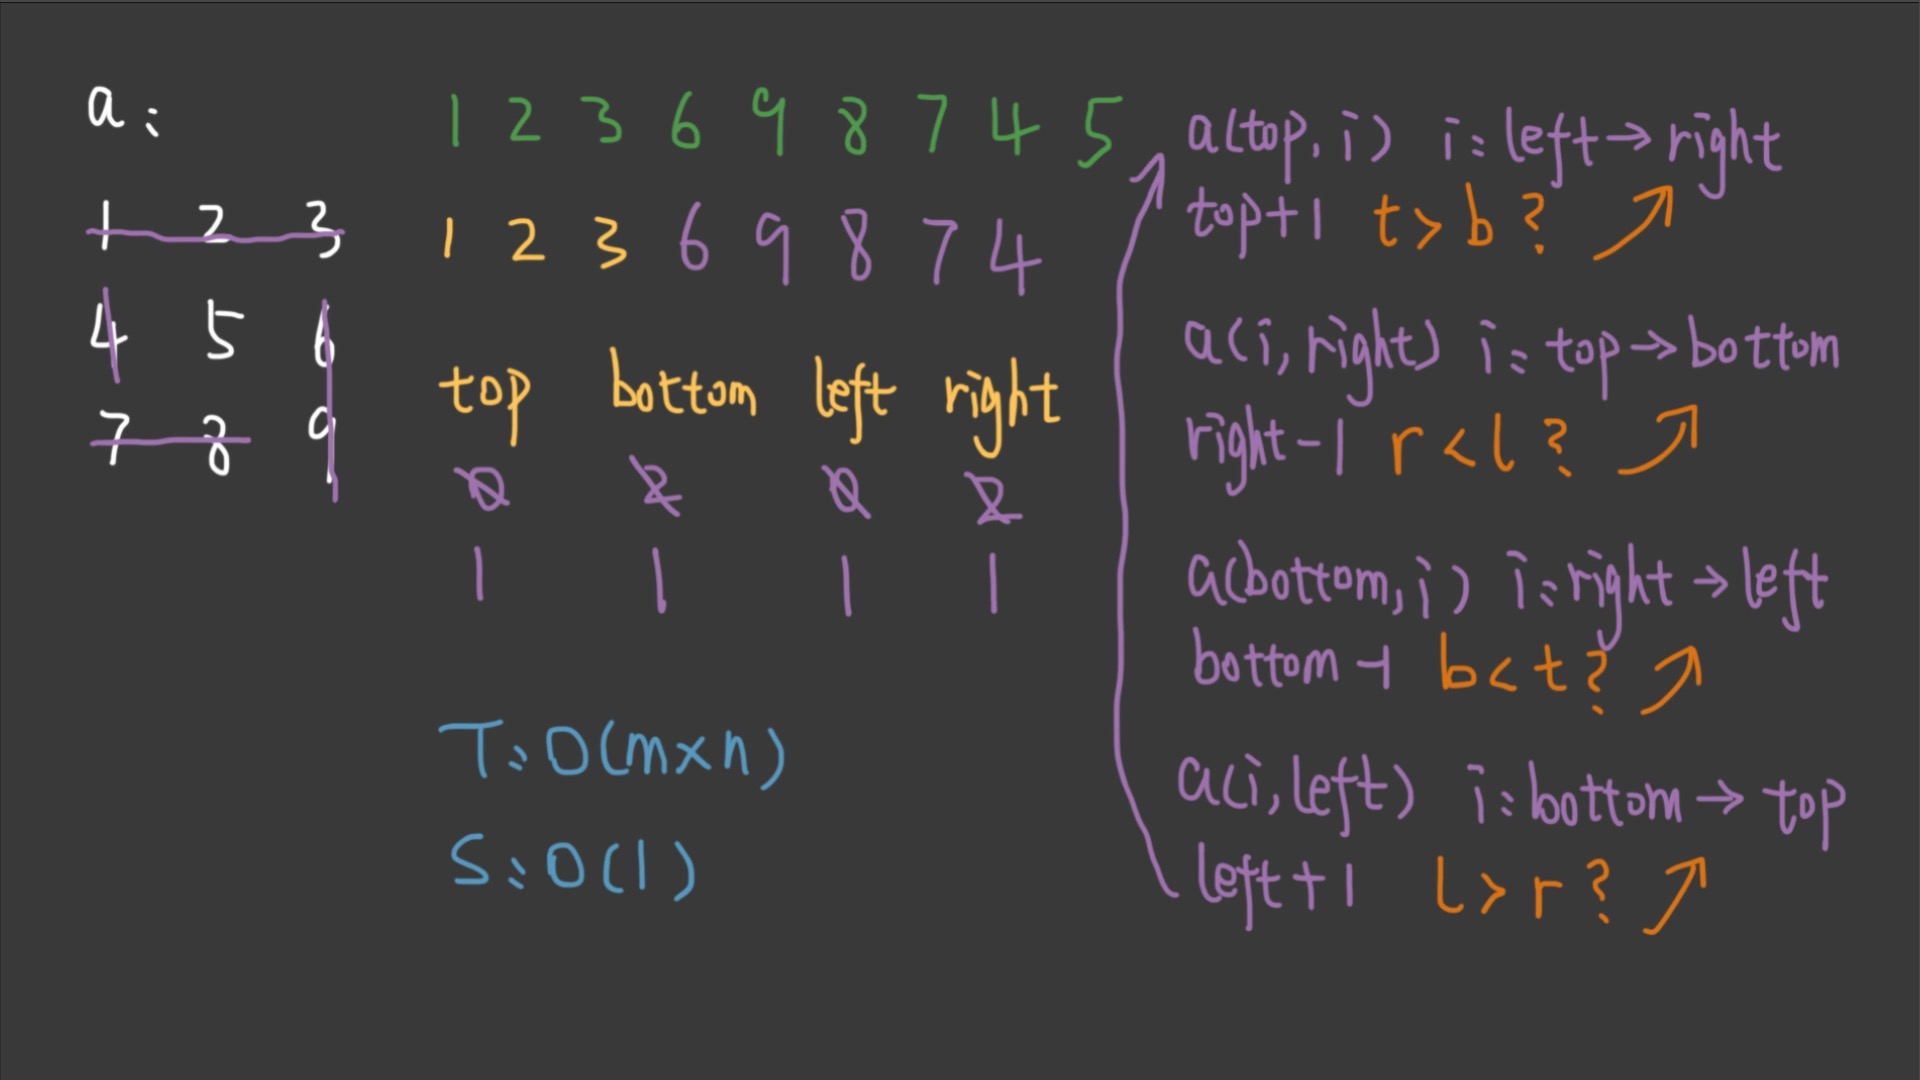 a:
1 2 3
4 5 6
7 8 9
1 2 3 6 9 8 7 4 5
1 2 3 6 9 8 7 4
top bottom left right
0 2 0 2
1 1 1 1
T: O(m×n)
S: O(1)
a(top, i) i: left → right
top+1 t > b ?
a(i, right) i: top → bottom
right-1 r < l ?
a(bottom, i) i: right → left
bottom-1 b < t ?
a(i, left) i: bottom → top
left+1 l > r ?